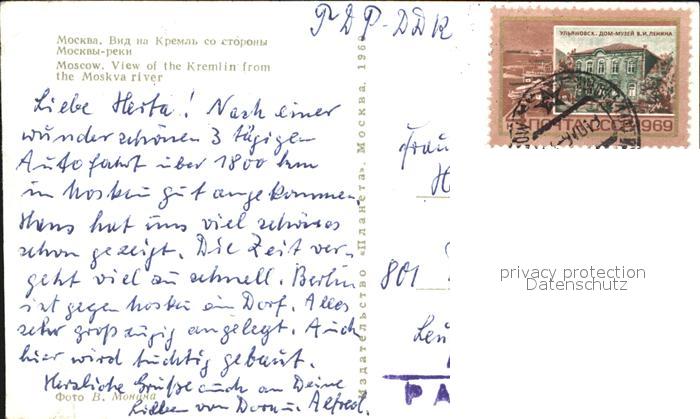 РДР-DDR
УЛЬЯНОВСК. ДОМ-МУЗЕЙ В.И.ЛЕНИНА
ПОЧТА СССР 1969
Москва. Вид на Кремль со стороны
Москвы-реки
Moscow. View of the Kremlin from
the Moskva river
Liebe Herta! Nach einer
wunderschönen 3 tägigen
Autofahrt über 1800 km
in Moskau gut angekommen.
Hans hat uns viel schönes
schon gezeigt. Die Zeit ver-
geht viel zu schnell. Berlin
ist gegen Moskau ein Dorf. Alles
sehr großzügig angelegt. Auch
hier wird tüchtig gebaut.
Herzliche Grüße auch an Deine
Lieben von Dora u. Alfred.
Фото В.
Издательство «Планета». Москва. 1969
Frau
H
801
PA
privacy protection
Datenschutz